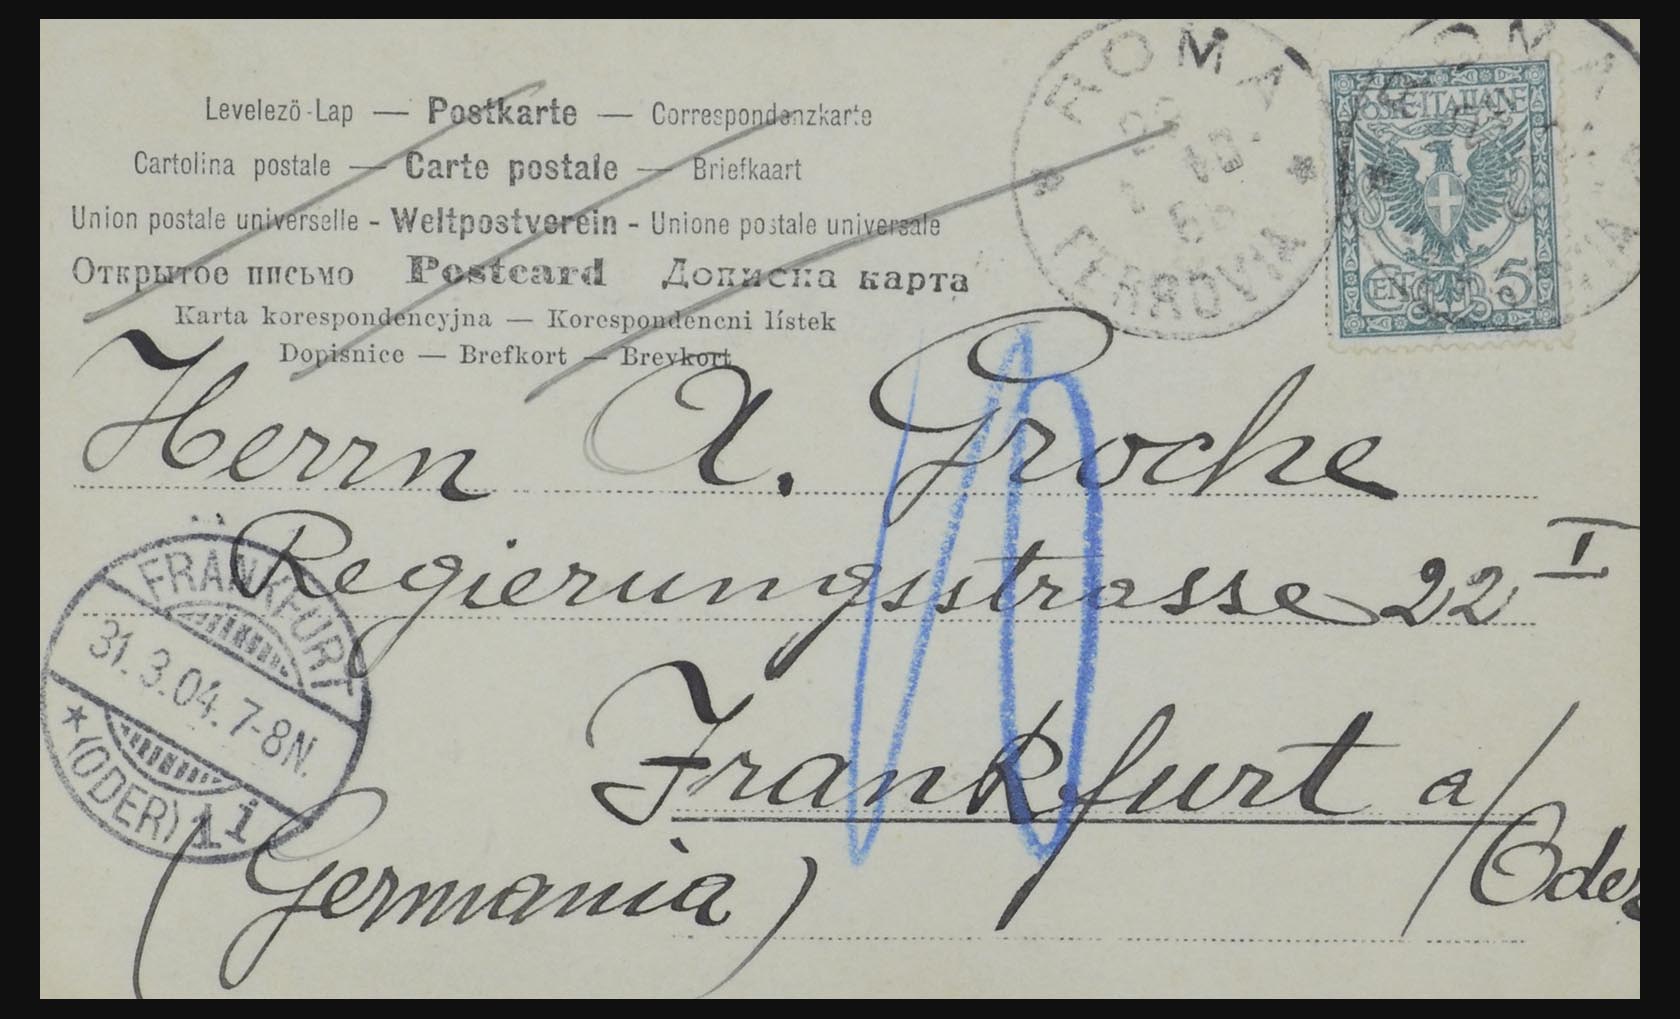 Levelezö-Lap — Postkarte — Correspondenzkarte
Cartolina postale — Carte postale — Briefkaart
Union postale universelle - Weltpostverein - Unione postale universale
Открытое письмо Postcard Дописна карта
Karta korespondencyjna — Korespondencni lístek
Dopisnice — Brefkort — Brevkort
ROMA
FERROVIA
POSTE·ITALIANE
CEN 5
Herrn A. Groche
Regierungsstrasse 22 I
Frankfurt a/Oder
(Germania)
10
FRANKFURT
31.3.04.7-8N.
(ODER) 1